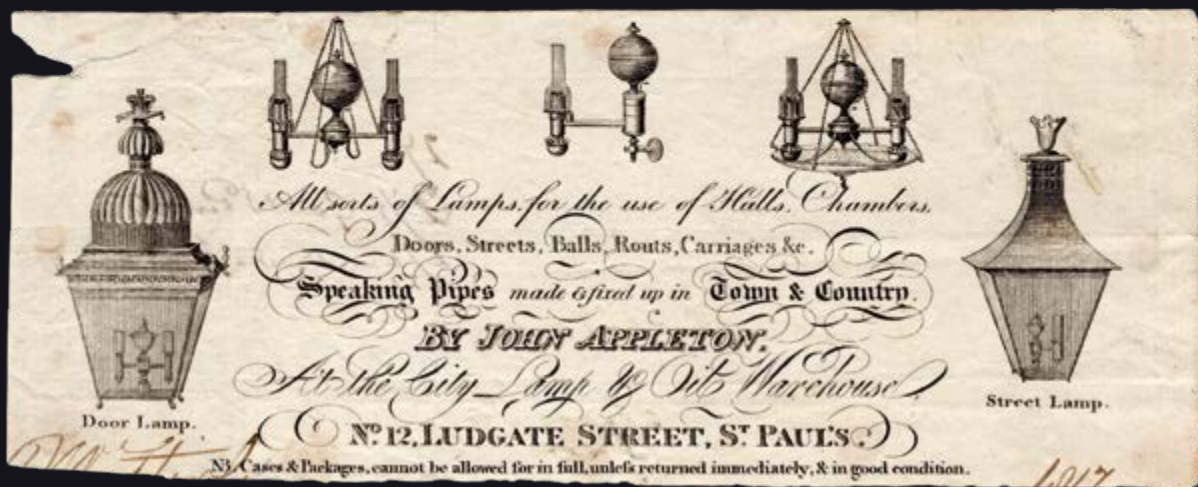 All sorts of Lamps, for the use of Halls, Chambers,
Doors, Streets, Balls, Routs, Carriages &c.
Speaking Pipes made & fixed up in Town & Country.
BY JOHN APPLETON.
At the City Lamp & Oil Warehouse
Door Lamp.
Street Lamp.
No. 12, LUDGATE STREET, ST PAUL'S.
NB. Cases & Packages, cannot be allowed for in full, unleſs returned immediately, & in good condition.
1817